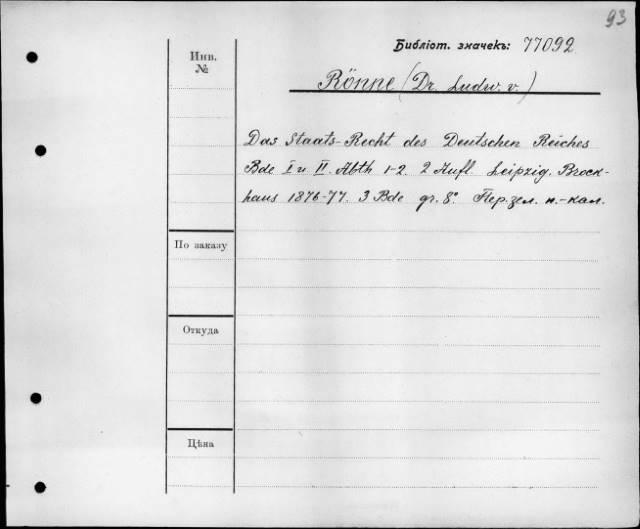 93
Библіот. значекъ: 77092
Инв.
№
Rönne (Dr. Ludw. v.)
Das Staats-Recht des Deutschen Reiches
Bde I u II. Abth 1-2. 2 Aufl. Leipzig. Brock-
haus 1876-77. 3 Bde gr. 8° Пер. зел. п.-кал.
По заказу
Откуда
Цѣна